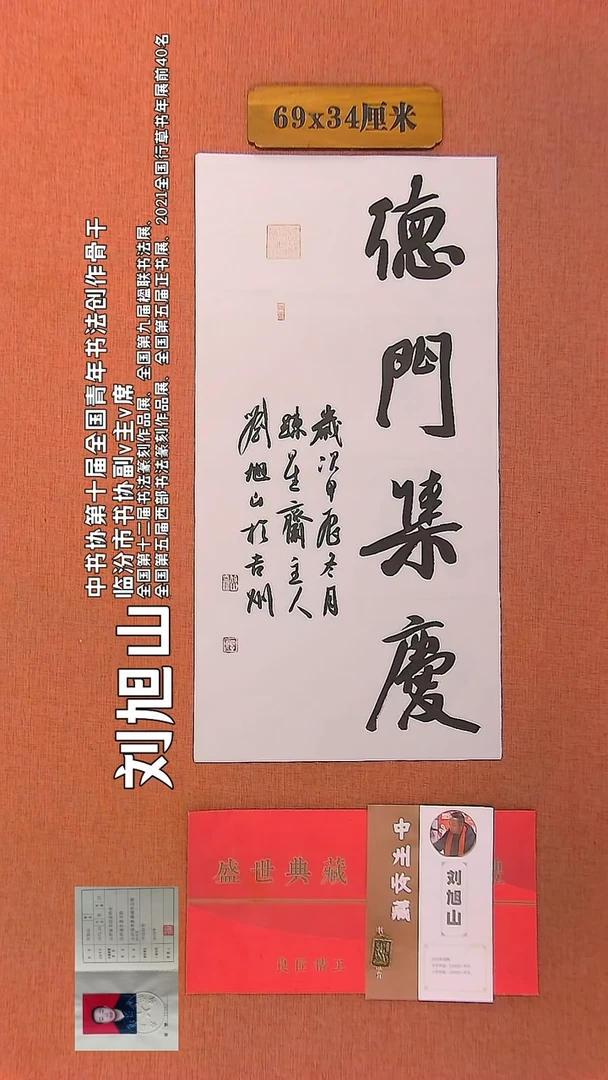 69x34厘米
德門集慶
歲次甲辰冬月
臻星齋主人
劉旭山於吉州
刘旭山
中书协第十届全国青年书法创作骨干
临汾市书协副v主v席
全国第十二届书法篆刻作品展、全国第九届楹联书法展、
全国第五届西部书法篆刻作品展、全国第五届正书展、2021全国行草书年展前40名
盛世典藏
中州收藏
刘旭山